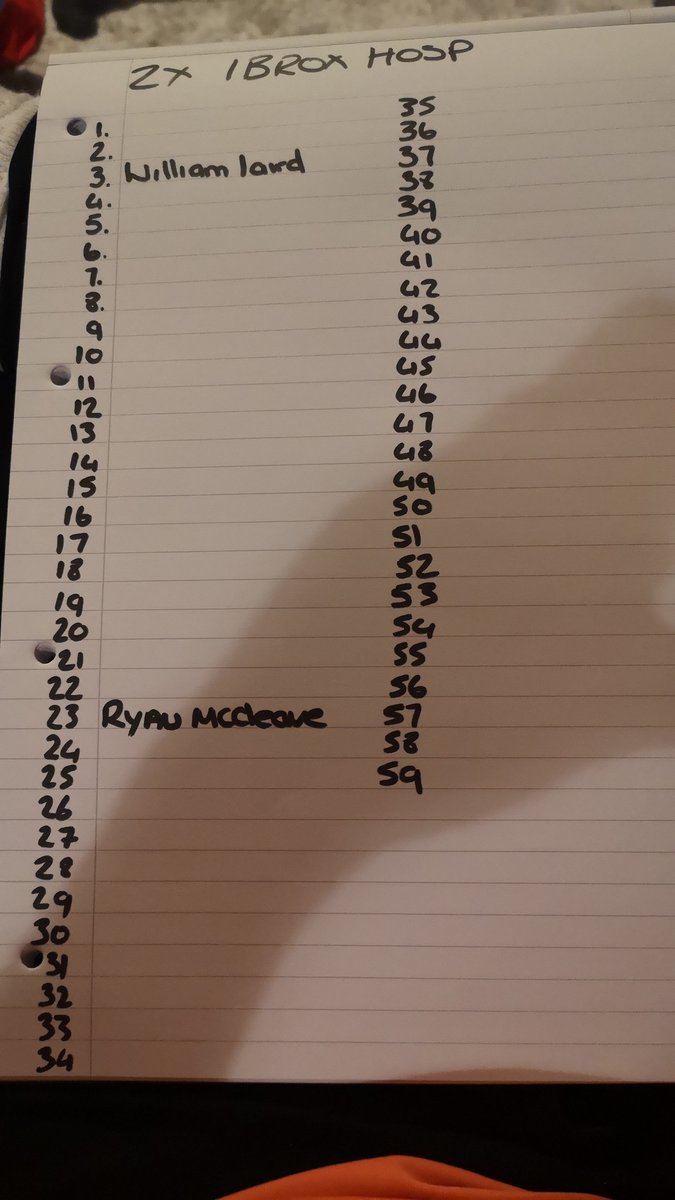 2X IBROX HOSP
1.
2.
3. William laird
4.
5.
6.
7.
8.
9
10
11
12
13
14
15
16
17
18
19
20
21
22
23 RYAN McCleave
24
25
26
27
28
29
30
31
32
33
34
35
36
37
38
39
40
41
42
43
44
45
46
47
48
49
50
51
52
53
54
55
56
57
58
59